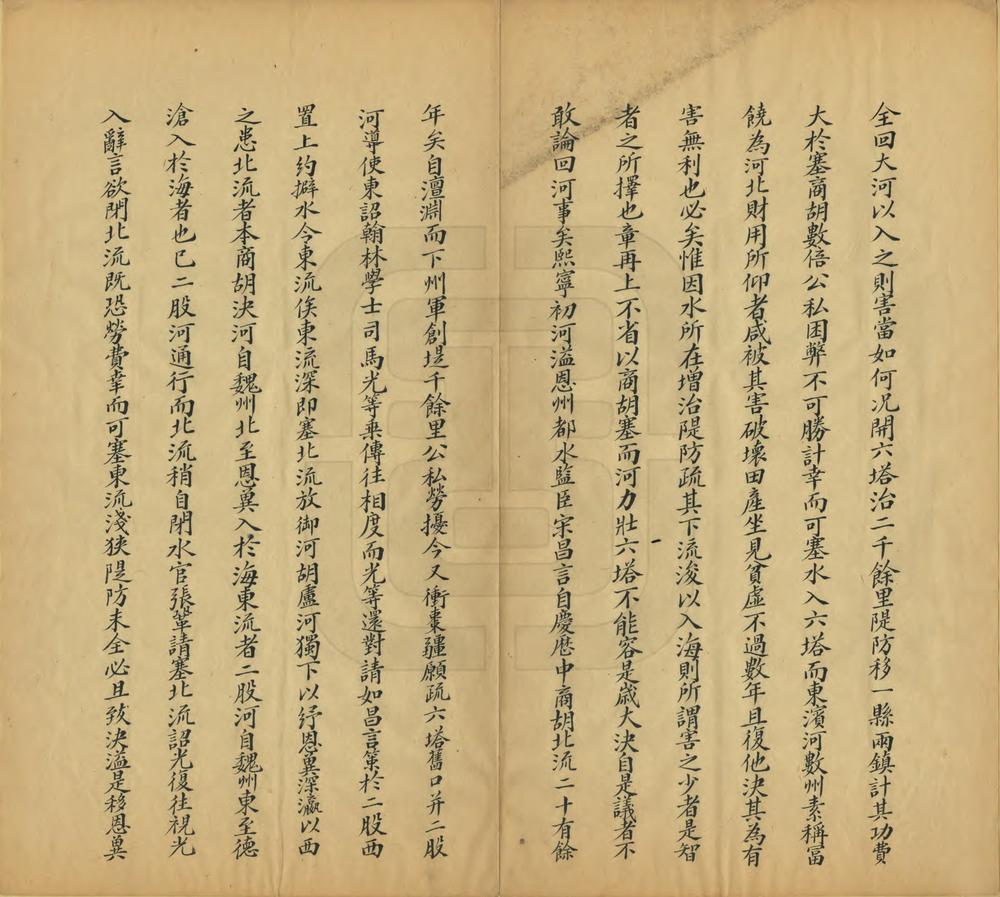 全回大河以入之則害當如何况開六塔治二千餘里隄防移一縣兩鎮計其功費
大於塞商胡數倍公私困弊不可勝計幸而可塞水入六塔而東濱河數州素稱富
饒為河北財用所仰者咸被其害破壞田產坐見貧虛不過數年且復他決其為有
害無利也必矣惟因水所在增治隄防疏其下流浚以入海則所謂害之少者是智
者之所擇也章再上不省以商胡塞而河力壯六塔不能容是歲大決自是議者不
敢論回河事矣熙寧初河溢恩州都水監臣宋昌言自慶厯中商胡北流二十有餘
年矣自澶淵而下州軍創堤千餘里公私勞擾今又衝棗疆願疏六塔舊口并二股
河導使東詔翰林學士司馬光等乗傳徃相度而光等還對請如昌言策於二股西
置上約擗水令東流俟東流深即塞北流放御河胡盧河獨下以紓恩冀深瀛以西
之患北流者本商胡決河自魏州北至恩冀入於海東流者二股河自魏州東至德
滄入於海者也已二股河通行而北流稍自閉水官張鞏請塞北流詔光復徃視光
入辭言欲閉北流既恐勞費幸而可塞東流淺狹隄防未全必且致決溢是移恩冀